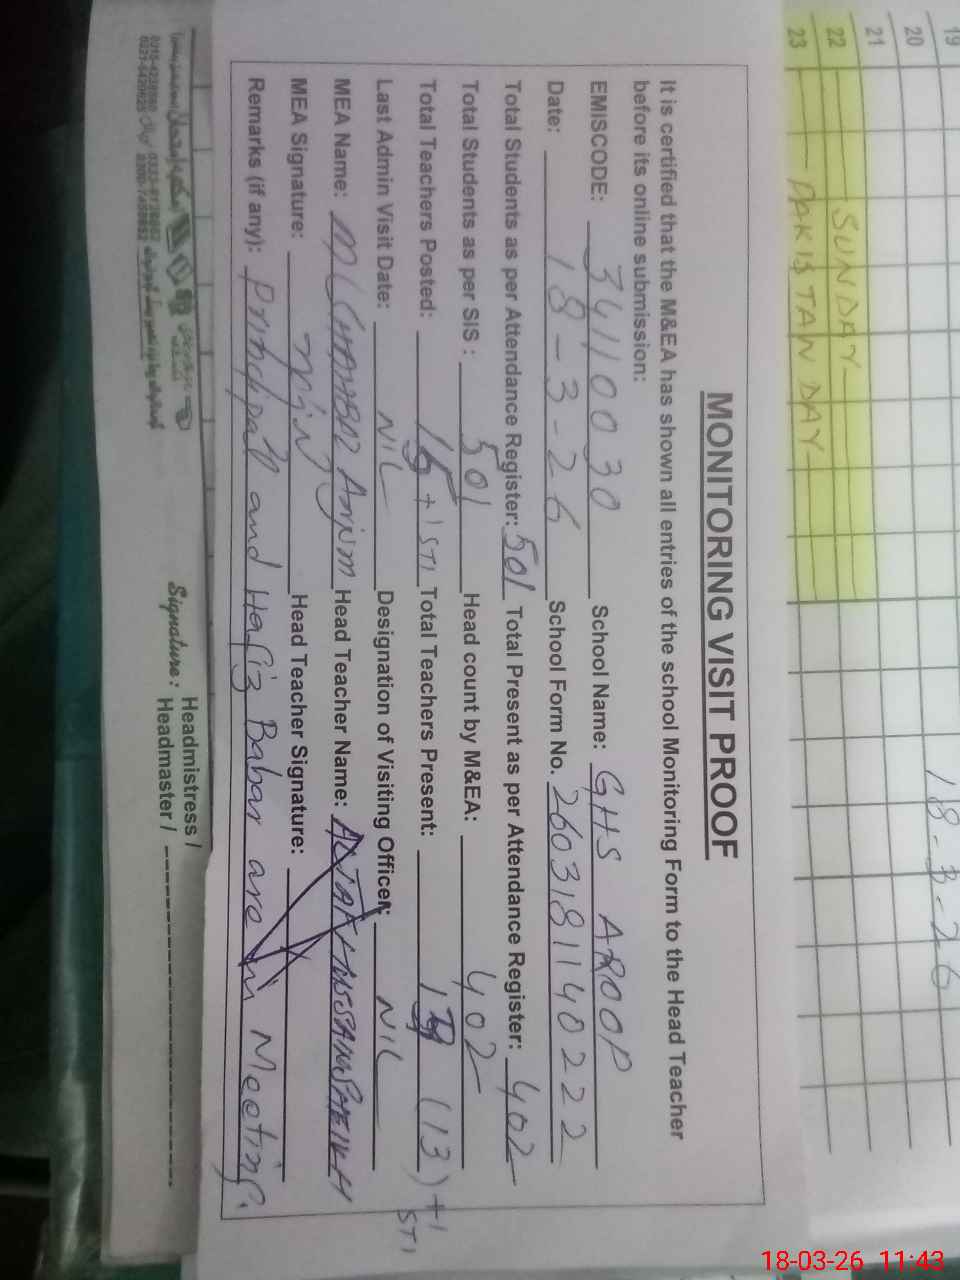 19
20
21
22 SUNDAY
23 PAKISTAN DAY
18-3-26
MONITORING VISIT PROOF
It is certified that the M&EA has shown all entries of the school Monitoring Form to the Head Teacher
before its online submission:
EMISCODE: 34110030 School Name: GHS AROOP
Date: 18-3-26 School Form No. 2603181140222
Total Students as per Attendance Register: 501 Total Present as per Attendance Register: 402
Total Students as per SIS : 501 Head count by M&EA: 402
Total Teachers Posted: 15 + 1STI Total Teachers Present: (13) + 1 STI
Last Admin Visit Date: NIL Designation of Visiting Officer: NIL
MEA Name: Anjum Head Teacher Name:
MEA Signature: Head Teacher Signature:
Remarks (if any): Principall and Hafiz Babar are in Meeting.
Headmistress /
Signature: Headmaster /
18-03-26 11:43